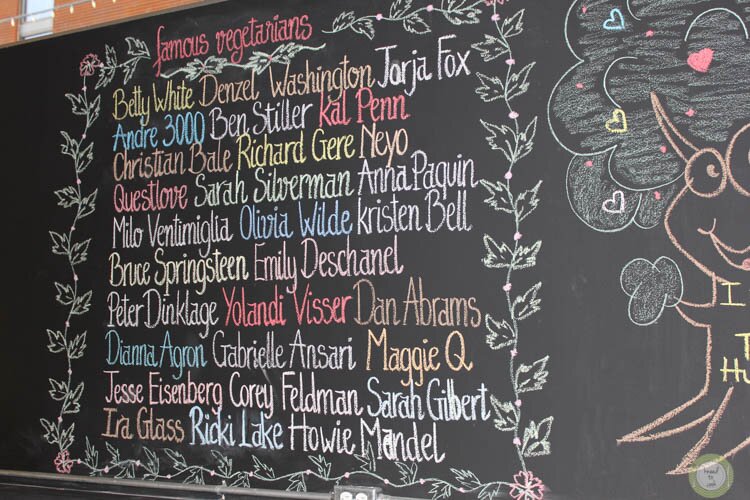 famous vegetarians
Betty White Denzel Washington Jorja Fox
Andre 3000 Ben Stiller Kal Penn
Christian Bale Richard Gere Neyo
Questlove Sarah Silverman Anna Paquin
Milo Ventimiglia Olivia Wilde kristen Bell
Bruce Springsteen Emily Deschanel
Peter Dinklage Yolandi Visser Dan Abrams
Dianna Agron Gabrielle Ansari Maggie Q
Jesse Eisenberg Corey Feldman Sarah Gilbert
Ira Glass Ricki Lake Howie Mandel
I